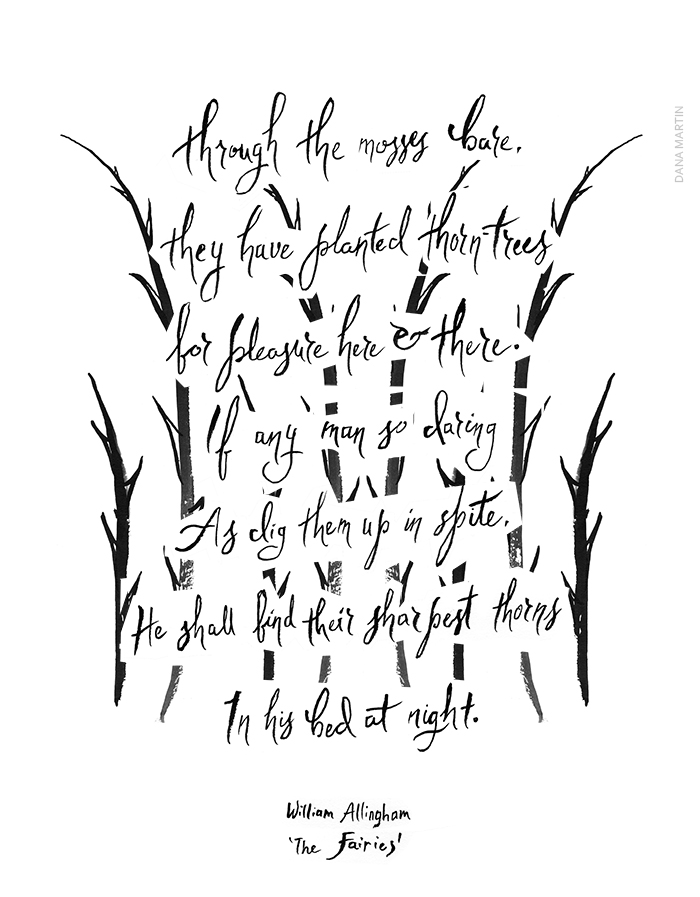 through the mosses bare,
they have planted thorn-trees
for pleasure here & there!
If any man so daring
As dig them up in spite,
He shall find their sharpest thorns
In his bed at night.
William Allingham
'The Fairies'
DANA MARTIN